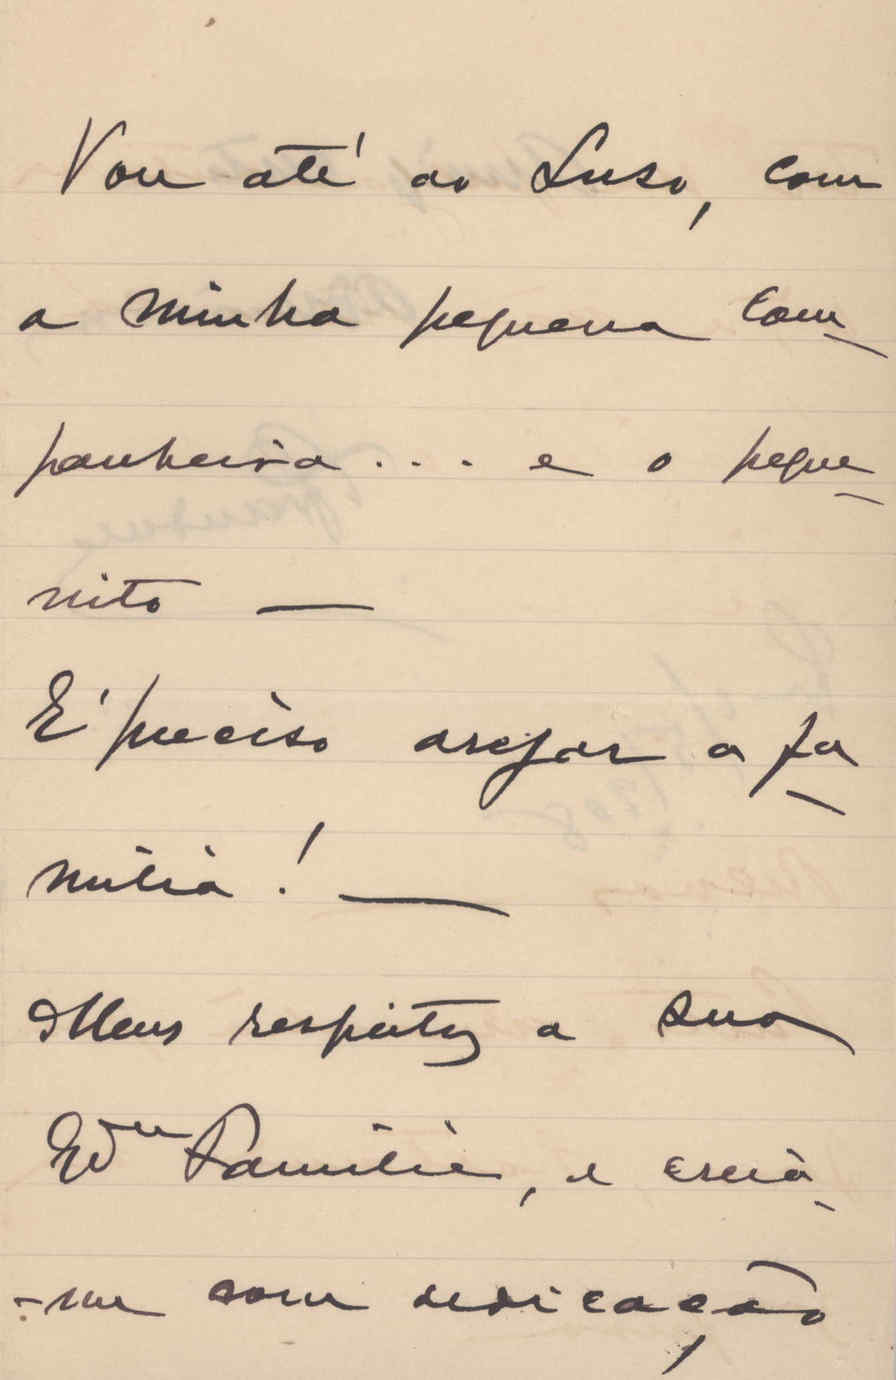 Vou até ao Luso, com
a minha pequena com-
panheira... e o peque-
nito —
É preciso arejar a fa-
milia! —
Meus respeitos a sua
Exma Familia, e creia-
-me com dedicação